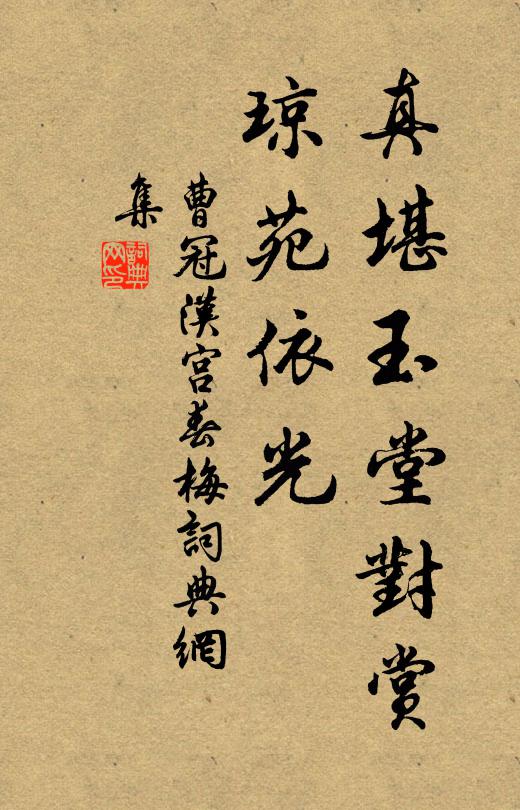 真堪玉堂對賞
琼苑依光
曹冠漢宮春梅詞典網
集
詞典網印